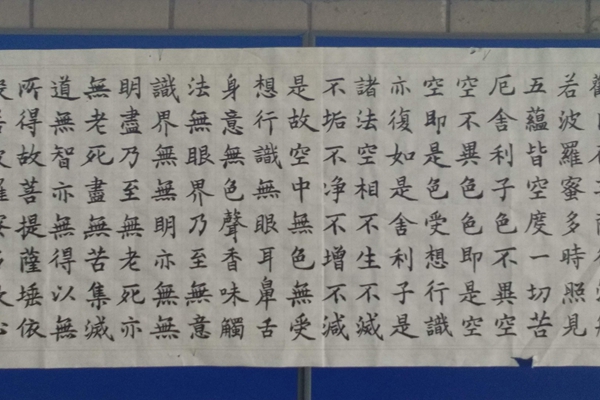 若波羅蜜多時照見
五蘊皆空度一切苦
厄舍利子色不異空
空不異色色即是空
空即是色受想行識
亦復如是舍利子是
諸法空相不生不滅
不垢不净不增不減
是故空中無色無受
想行識無眼耳鼻舌
身意無色聲香味觸
法無眼界乃至無意
識界無無明亦無無
明盡乃至無老死亦
無老死盡無苦集滅
道無智亦無得以無
所得故菩提薩埵依